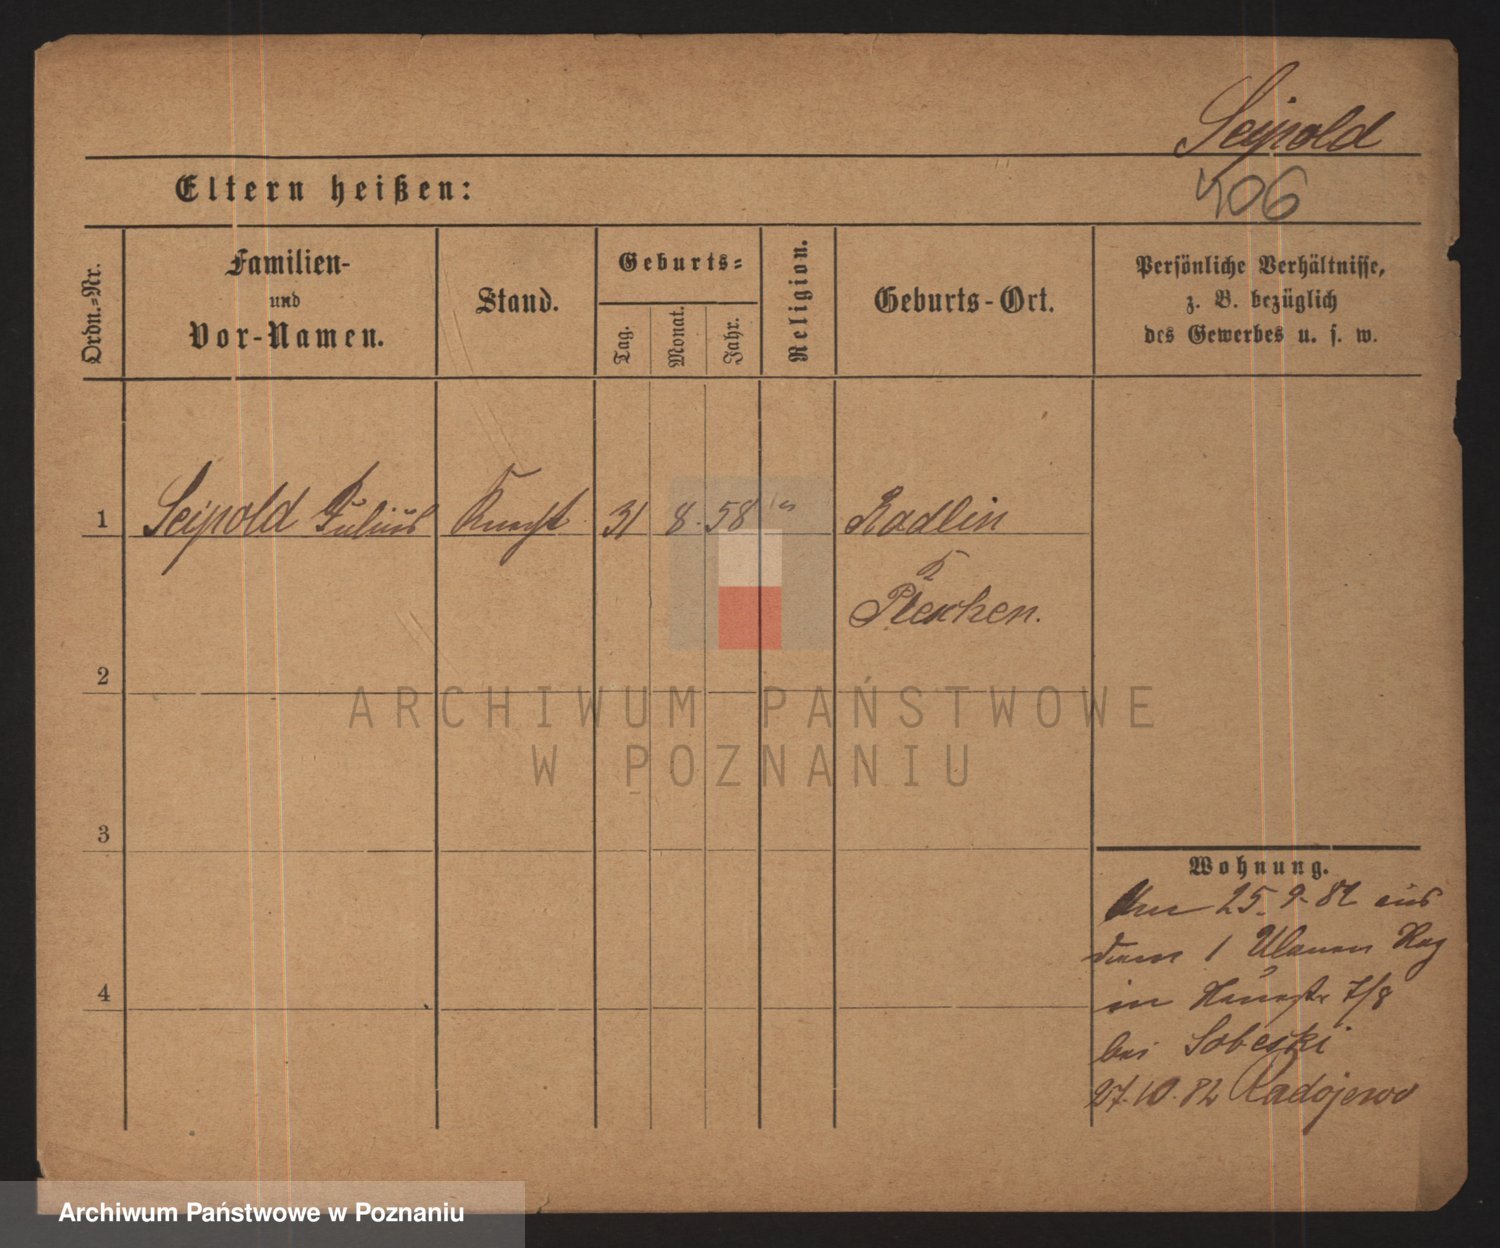 Seipold
406
Eltern heißen:
Ordn.=Nr.
Familien-
und
Vor-Namen.
Stand.
Geburts=
Tag.
Monat.
Jahr.
Religion.
Geburts-Ort.
Persönliche Verhältnisse,
z. B. bezüglich
des Gewerbes u. s. w.
1
Seipold Julius
Knecht
31
8.
58
Radlin
Pleschen.
2
3
4
ARCHIWUM PAŃSTWOWE
W POZNANIU
Wohnung.
25.9.82 aus
dem 1 Ulanen Reg
in 7/8
bei Sobeski
27.10.82 Radojewo
Archiwum Państwowe w Poznaniu